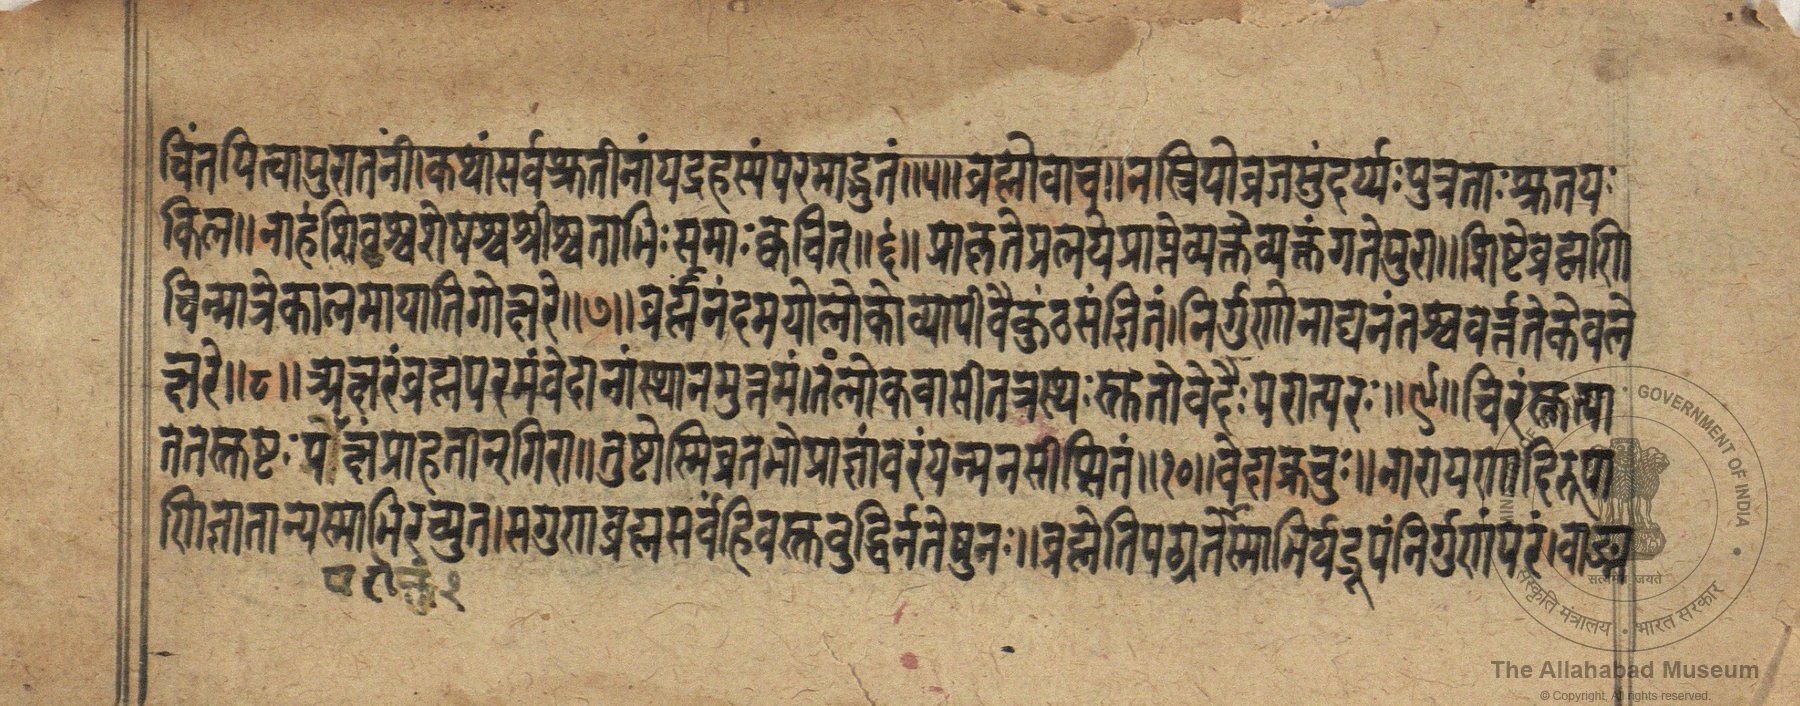 चिंतयित्वापुरातनीं।कथांसर्वश्रुतीनांयद्रहस्यंपरमाद्भुतं॥५॥ब्रह्मोवाच॥नस्त्रियोब्रजसुंदर्य्यःपुत्रताःश्रुतयः
किल॥नाहंशिवश्चशेषश्चश्रीश्चताभिःसमाःक्वचित्॥६॥प्राकृतेप्रलयेप्राप्तेव्यक्तेव्यक्तंगतेपुरा॥शिष्टेब्रह्मणि
चिन्मात्रेकालमायातिगोक्षरे॥७॥ब्रह्मानंदमयोलोकोव्यापीवैकुंठसंज्ञितं।निर्गुणोनाद्यनंतश्चवर्त्ततेकेवले
क्षरे॥८॥अक्षरंब्रह्मपरमंवेदानांस्थानमुत्तमं।तंलोकवासीतत्रस्थःस्तुतोवेदैःपरात्परः॥९॥चिरंस्तुत्या
ततस्तुष्टःपरोक्षंप्राहतान्गिरा॥तुष्टोस्मिब्रूतभोप्राज्ञांवरंयन्मनसीप्सितं॥१०॥वेदाऊचुः॥नारायणादिरूपा
णिज्ञातान्यस्माभिरच्युत।सगुणाब्रह्मसर्वंहिवस्तुबुद्धिर्नतेषुनः॥ब्रह्मेतिपठ्यतेस्माभिर्यद्रूपंनिर्गुणांपरं।वाङ्म
GOVERNMENT OF INDIA
सत्यमेव जयते
संस्कृति मंत्रालय • भारत सरकार
The Allahabad Museum
© Copyright, All rights reserved.